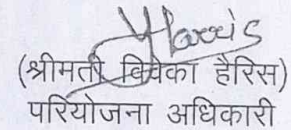 Harris
(श्रीमती विवेका हैरिस)
परियोजना अधिकारी